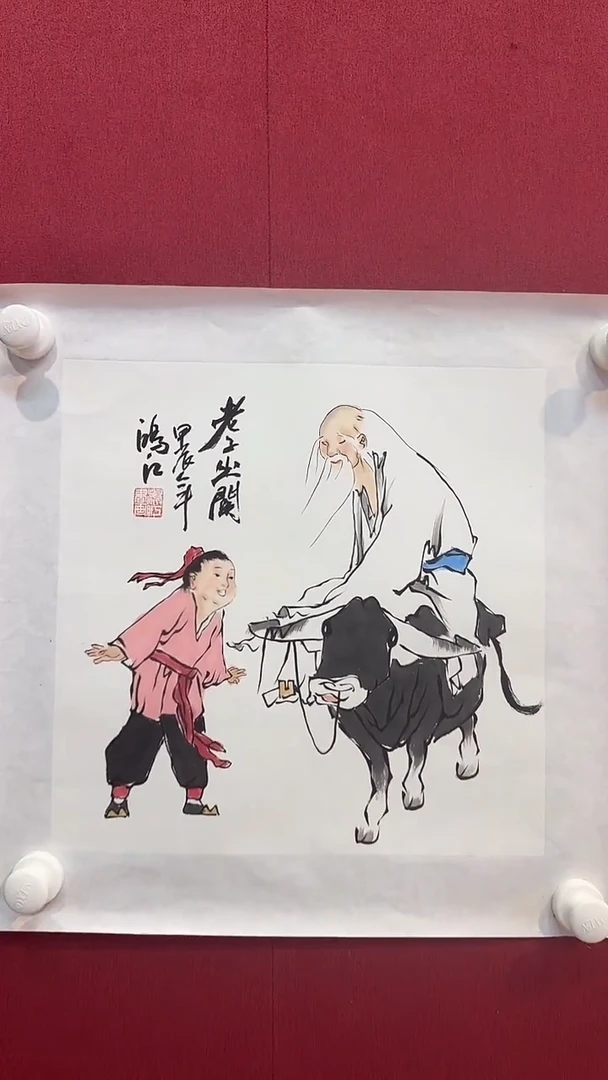 老子出關
甲辰年
鴻江